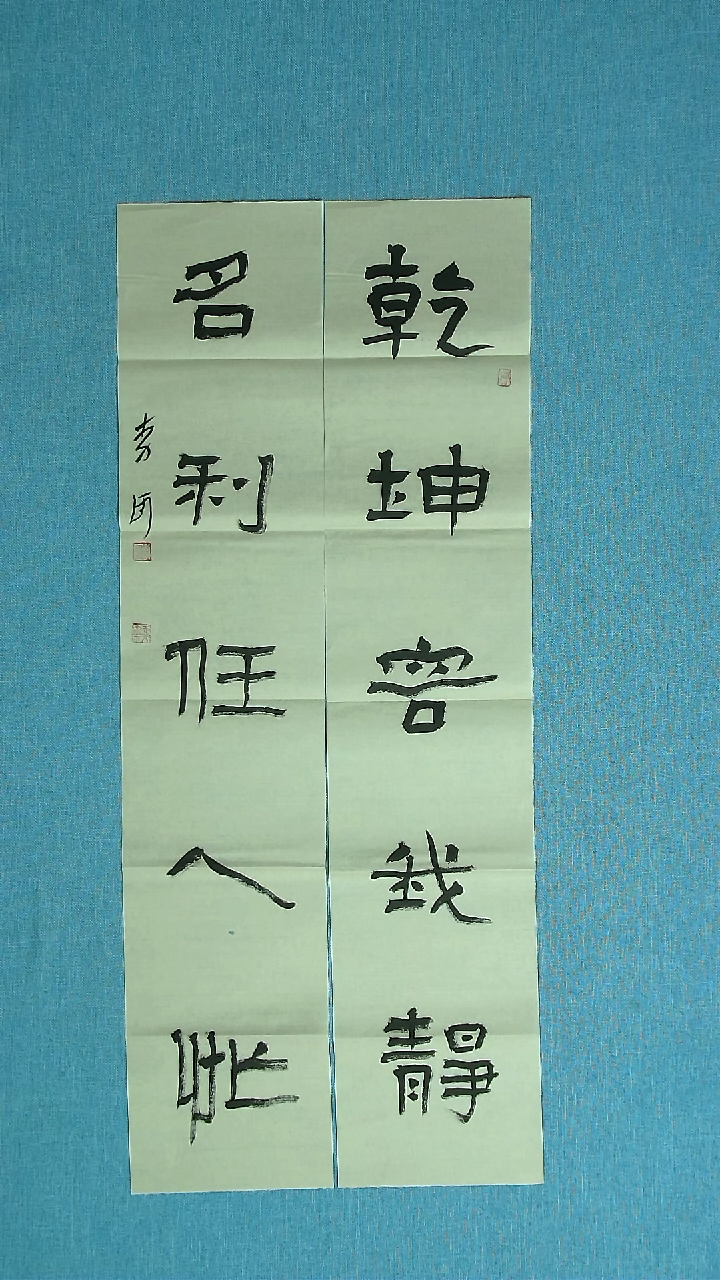 乾坤容我靜
名利任人忙